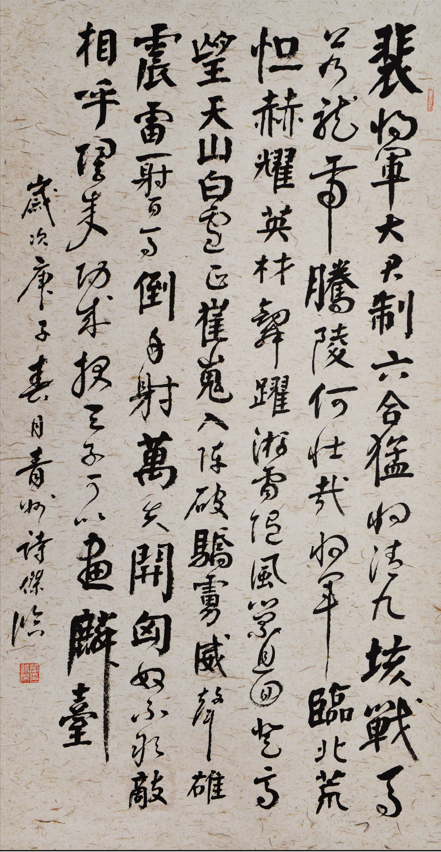 裴将軍大君制六合猛将清九垓戰馬
若龍虎騰陵何壮哉将軍臨北荒
恒赫耀英材舞躍游電随風縈且回登高
望天山白雪正崔嵬入陣破驕虜威聲雄
震雷一射百馬倒再射萬夫開匈奴不敢敵
相呼歸来功成报天子可以畫麟臺
歲次庚子春月青州詩傑臨